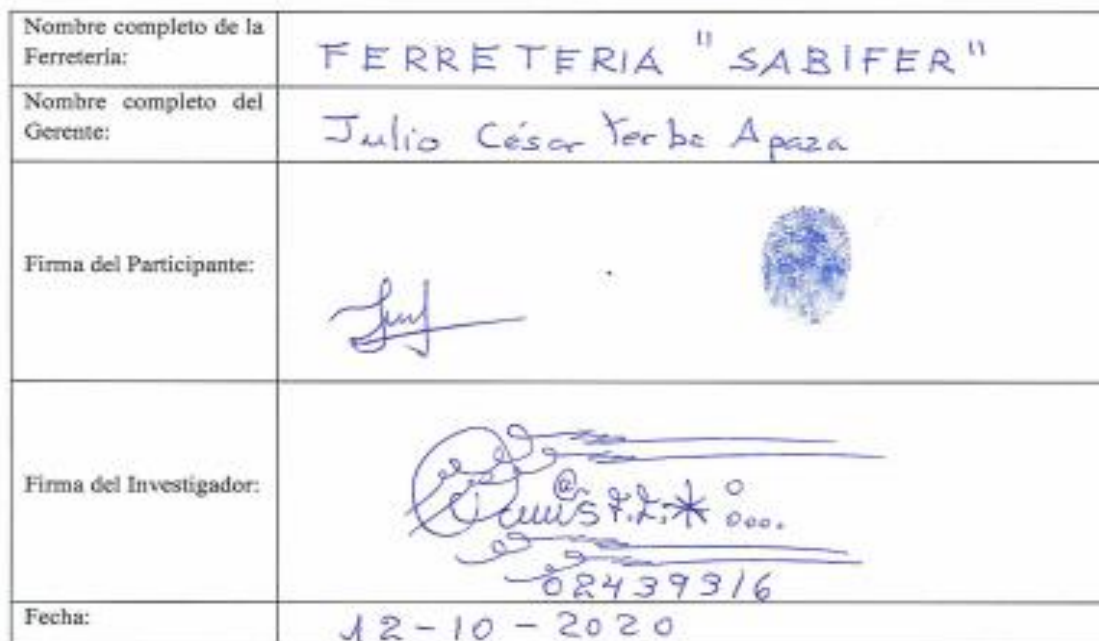 Nombre completo de la
Ferretería:
FERRETERIA "SABIFER"
Nombre completo del
Gerente:
Julio César Yerba Apaza
Firma del Participante:
Firma del Investigador:
02439316
Fecha:
12-10-2020